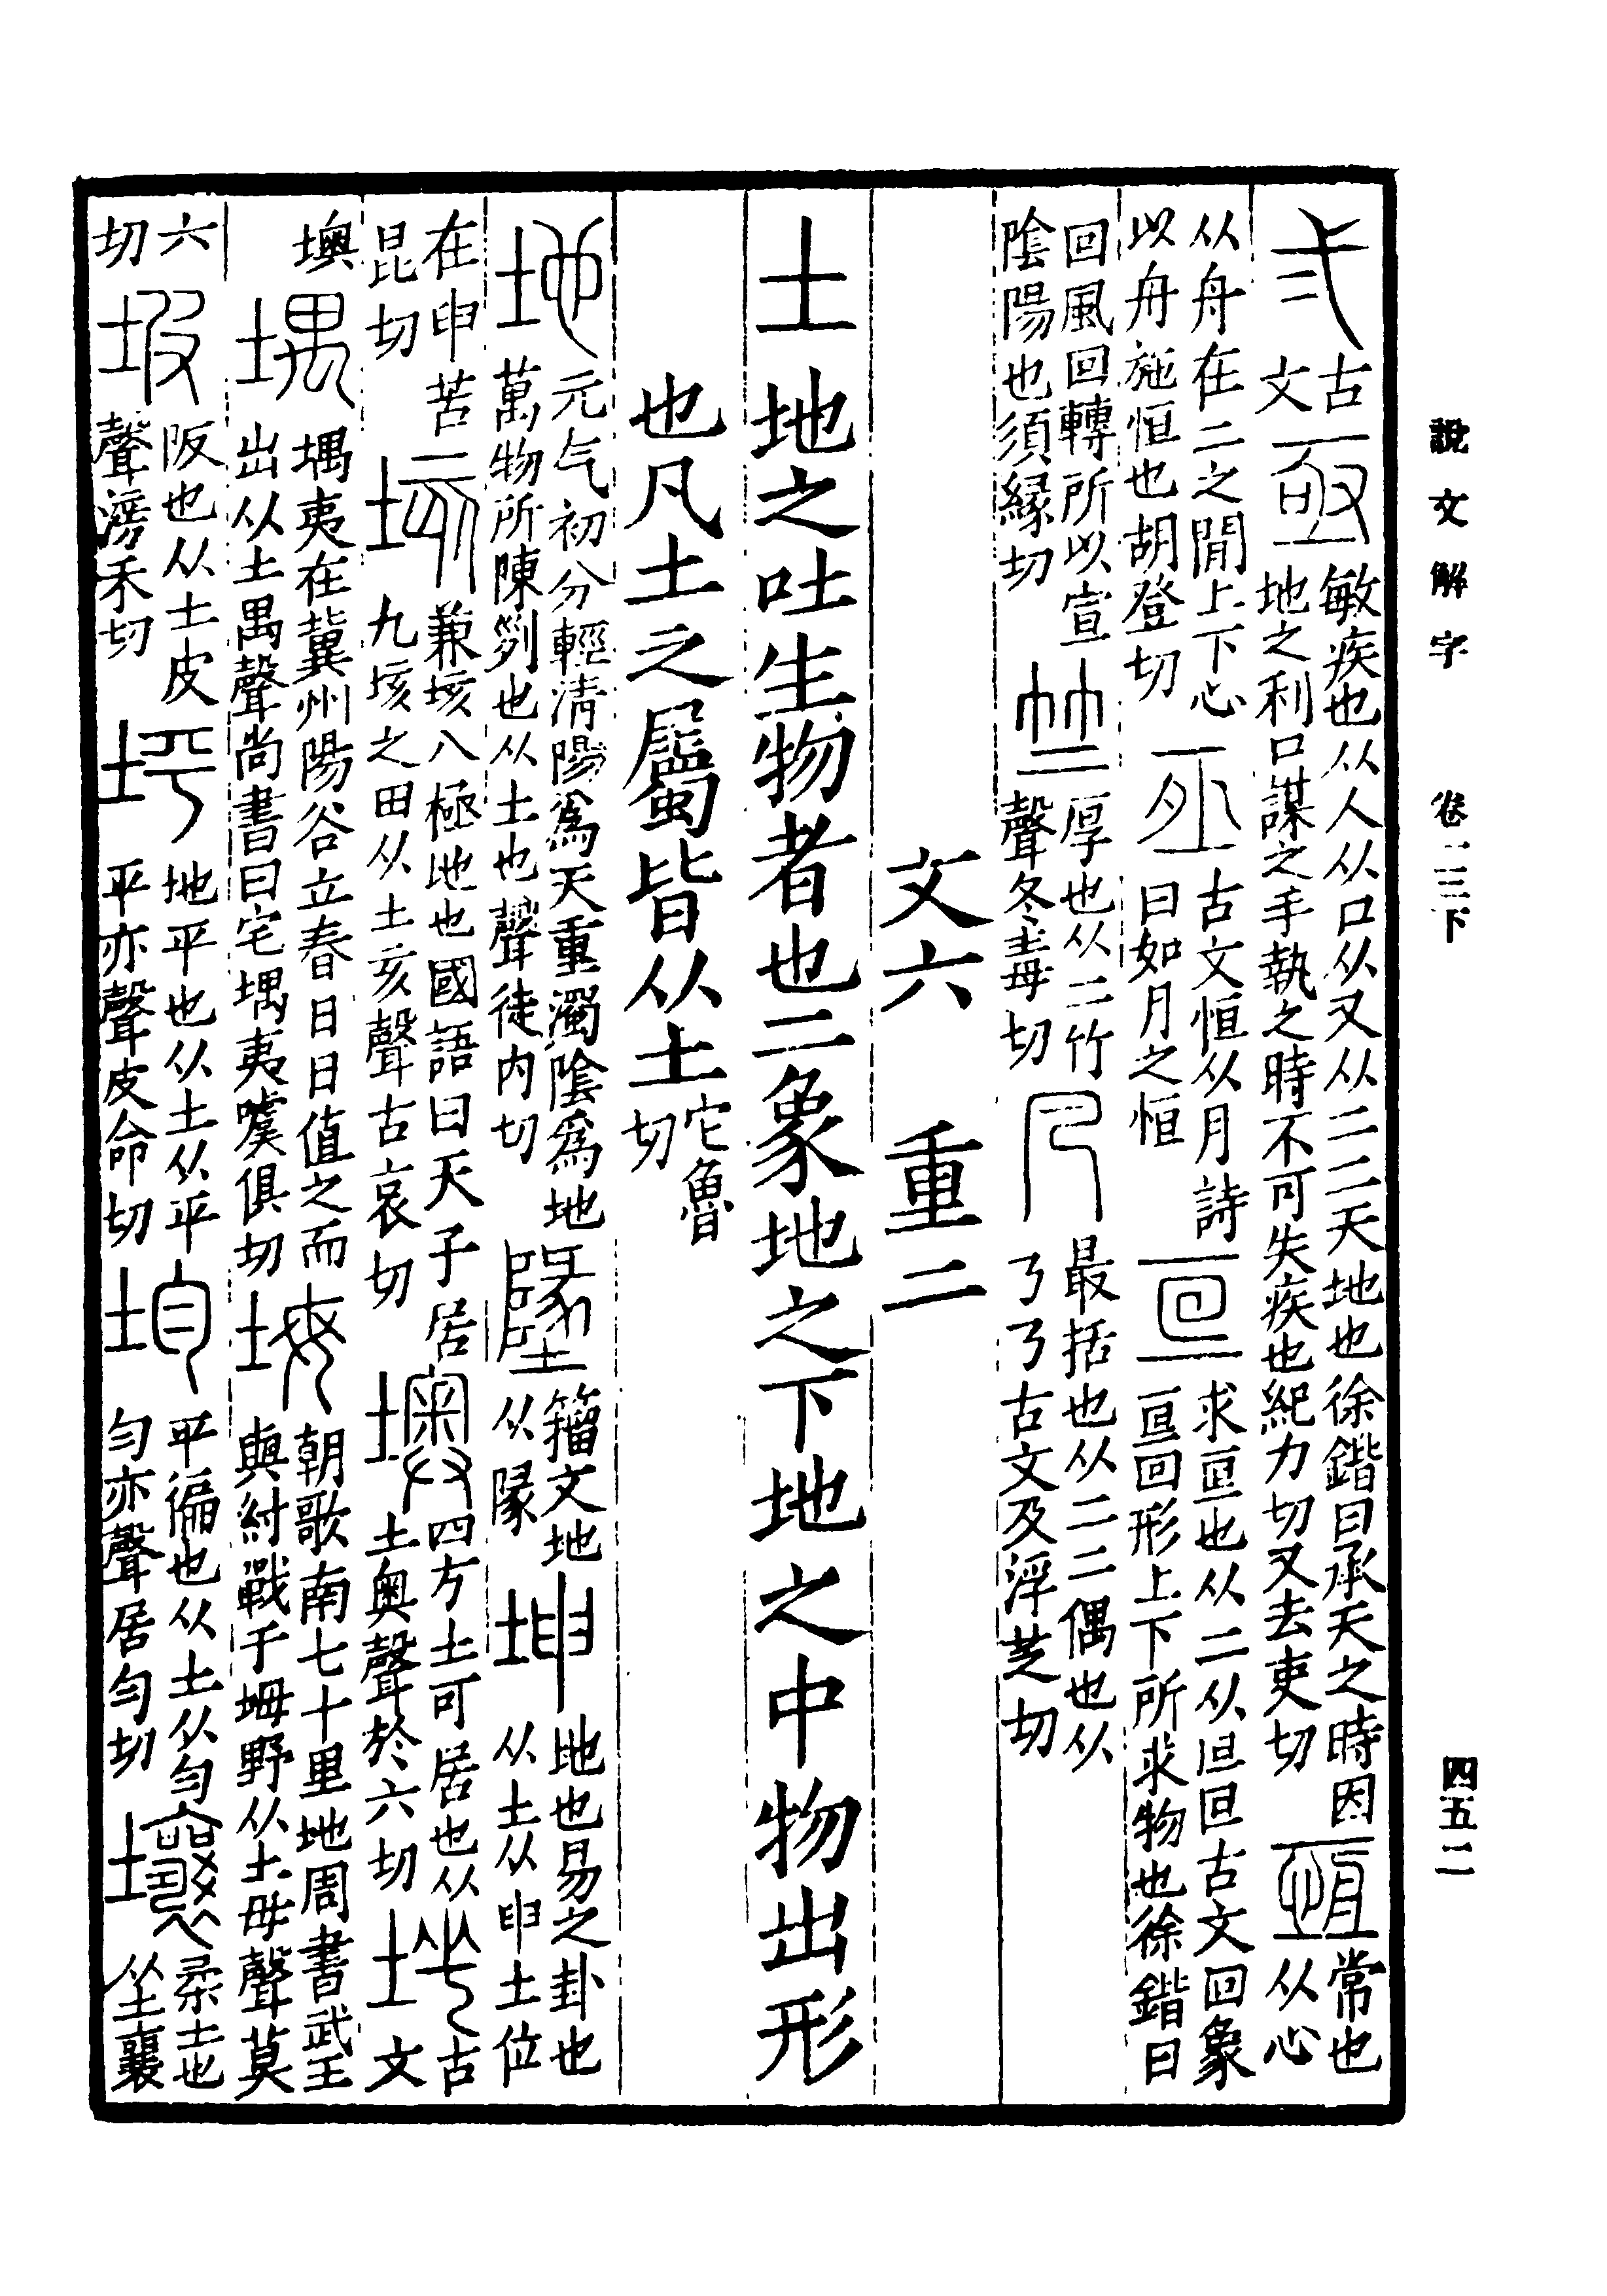 說文解字　卷一三下　四五二
弍古文亟敏疾也从人从口从又从二二天地也徐鍇曰承天之時因地之利口謀之手執之時不可失疾也紀力切又去吏切恆常也从心
从舟在二之閒上下心以舟施恒也胡登切𠄨古文恒从月詩曰如月之恒亘求亘也从二从囘囘古文回象亘回形上下所求物也徐鍇曰
回風回轉所以宣陰陽也須緣切竺厚也从二竹聲冬毒切凡最括也从二二偶也从㇋㇋古文及浮芝切
文六　重二
土地之吐生物者也二象地之下地之中物出形
也凡土之屬皆从土它魯切
地元气初分輕清陽爲天重濁陰爲地萬物所陳𠛱也从土也聲徒内切墬籀文地从隊坤地也易之卦也从土从申土位
在申苦昆切垓兼垓八極地也國語曰天子居九垓之田从土亥聲古哀切墺四方土可居也从土奥聲於六切𡊄古文
墺堣堣夷在冀州陽谷立春日日值之而出从土禺聲尚書曰宅堣夷噳俱切坶朝歌南七十里地周書武王與紂戰于坶野从土母聲莫
六切坡阪也从土皮聲滂禾切坪地平也从土从平平亦聲皮命切均平徧也从土从匀匀亦聲居匀切壤柔土也从土襄